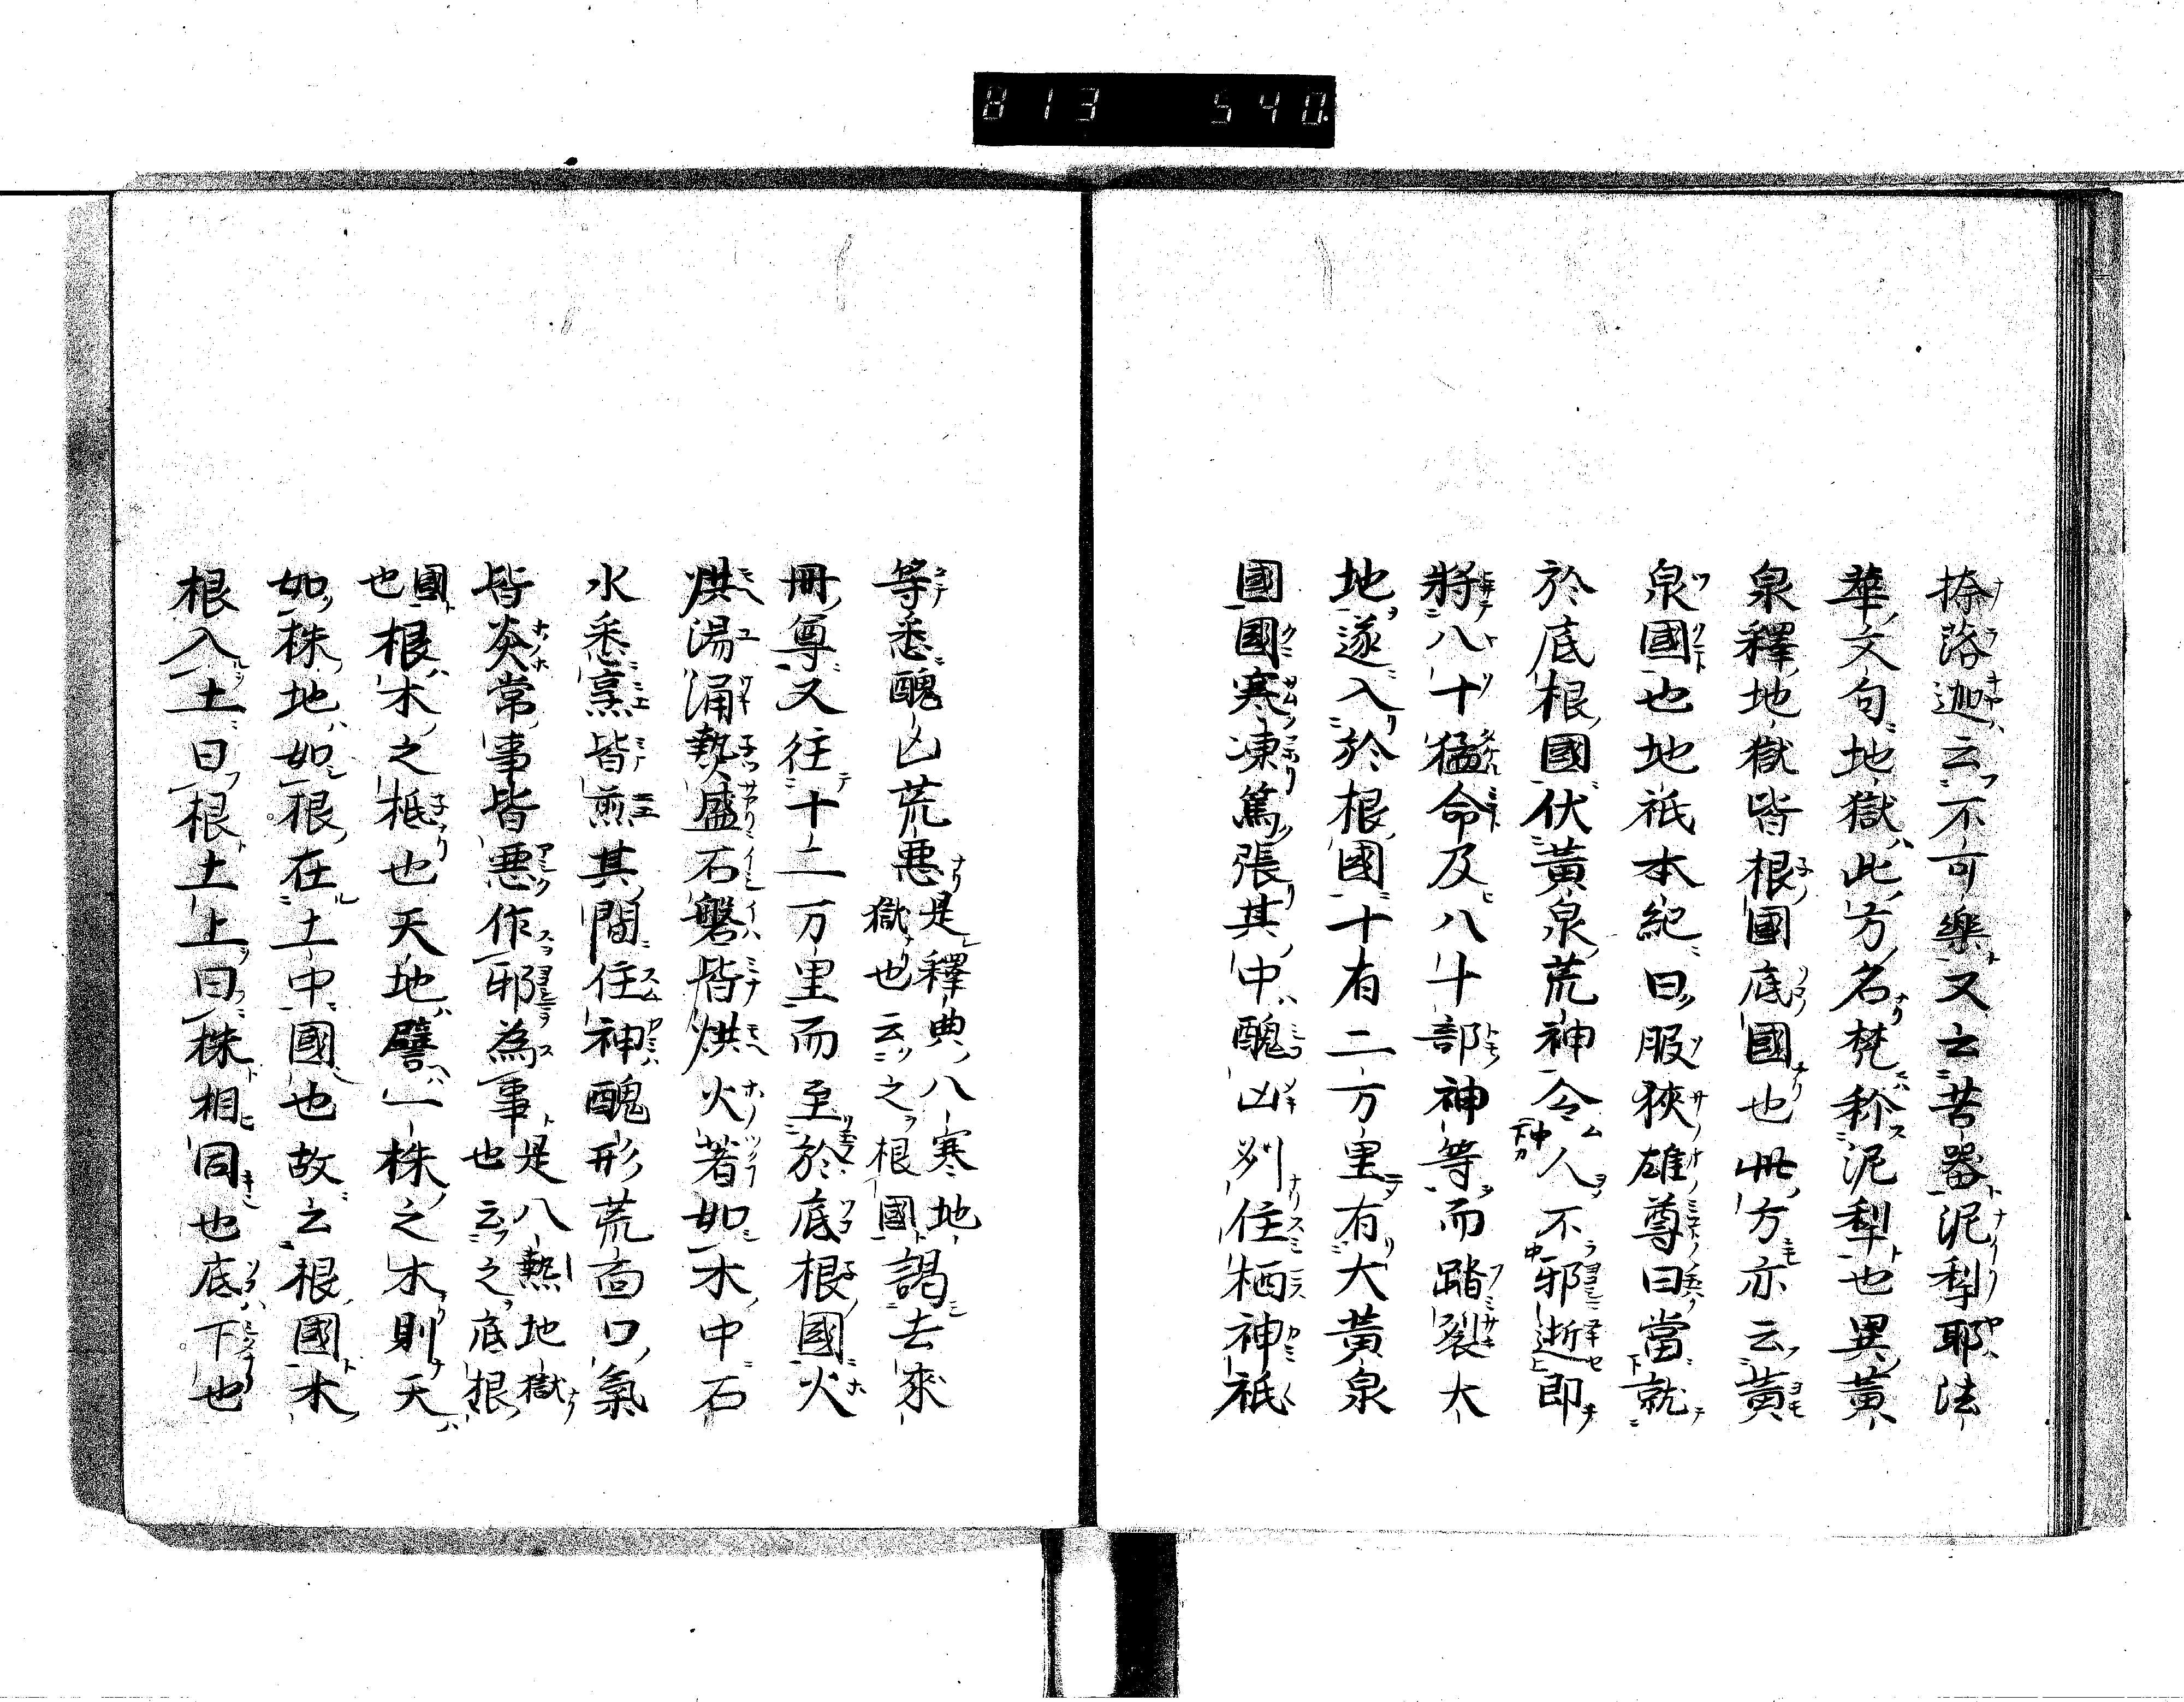 813 540.
捺落迦云不可樂又云苦器泥犁耶法
華文句地獄此方名梵稱泥犁也異黃
泉釋地獄皆根國底國也此方亦云黃
泉國也地祇本紀曰服狹雄尊曰當就
於底根國伏黃泉荒神令人不邪逝即
將八十猛命及八十部神等而踏裂大
地遂入於根國十有二万里有大黃泉
國國寒凍篤張其中醜凶列住栖神祇
等悉醜凶荒悪是釋典八寒地
獄也云之根國謁去來
冊尊又往十二万里而至於底根國火
烘湯涌熱盛石磐皆烘火著如木中石
水悉烹皆煎其間住神醜形荒面口氣
皆炎常事皆悪作邪為事是八熱地獄
也云之底根
國
也根木之柢也天地譬一株之木則天
如株地如根在土中國也故云根國木
根入土曰根土上曰株相同也底下也